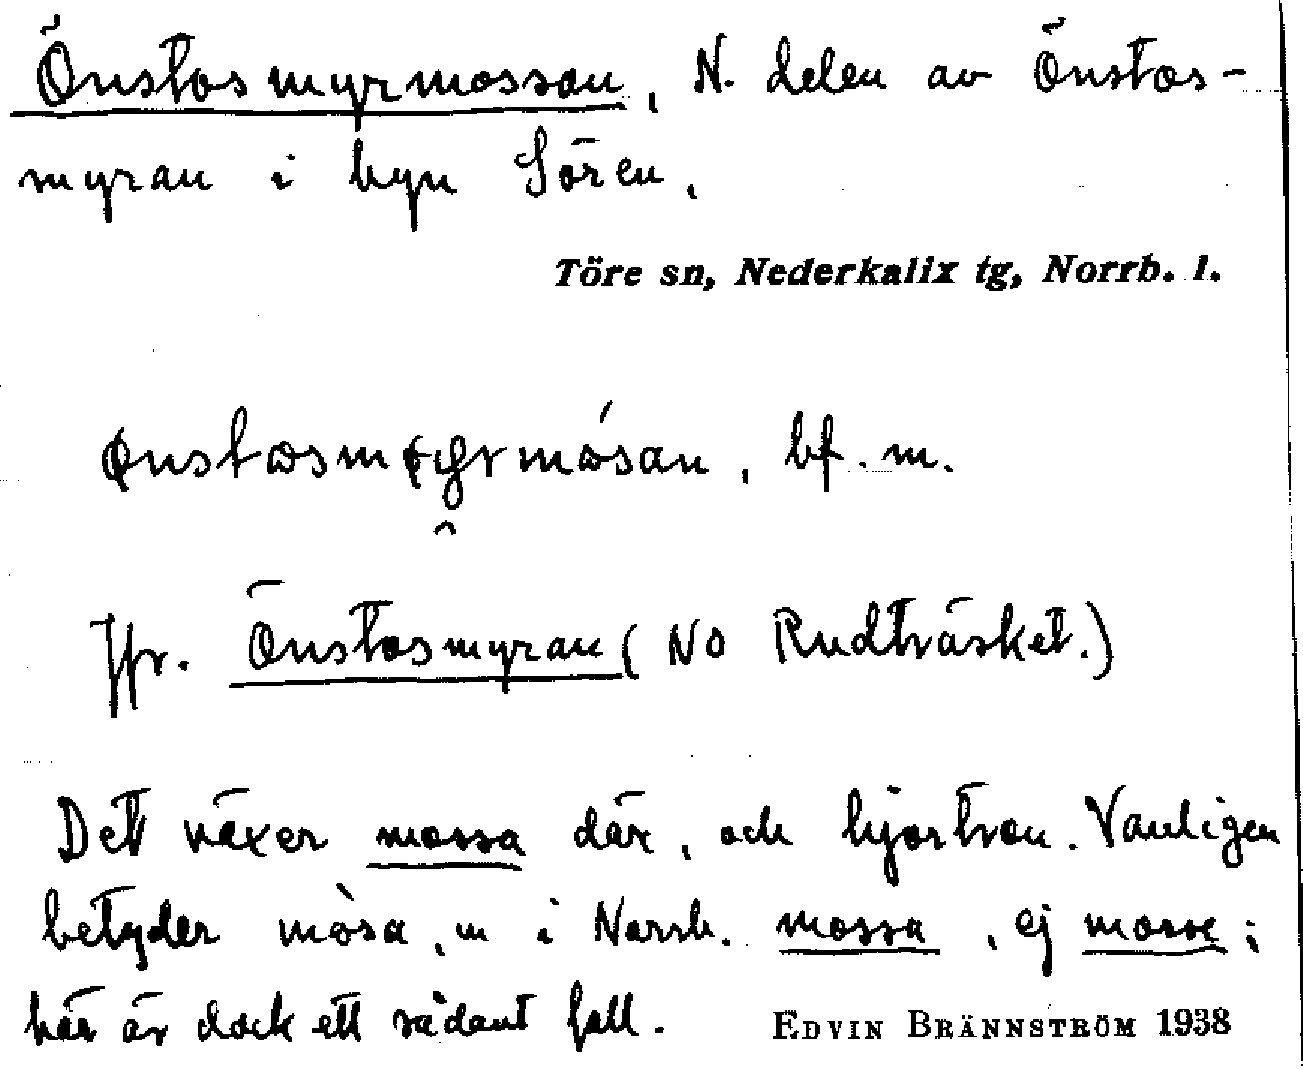 Önstosmyrmossan, N. delen av Önstos-
myran i byn Sören.
Töre sn, Nederkalix tg, Norrb. l.
bf. m.
Jfr. Önstosmyran (NO Rudträsket.)
Det växer mossa där, och hjortron. Vanligen
betyder mòsa, m i Norrb. mossa, ej mosse;
här är dock ett sådant fall. EDVIN BRÄNNSTRÖM 1938